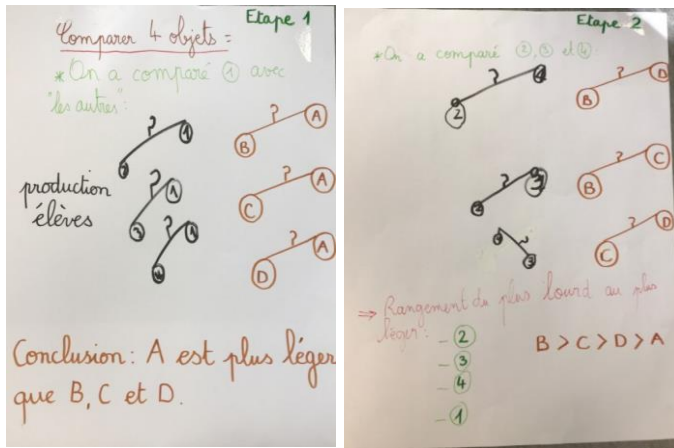 Etape 1
Comparer 4 objets =
* On a comparé ① avec
"les autres":
? 1
2
B ? A
production
élèves
? 1
3
C ? A
? 1
4
D ? A
Conclusion: A est plus léger
que B, C et D.
Etape 2
* On a comparé ②, ③ et ④.
2 ? 4
B ? D
2 ? 3
B ? C
4 ? 3
C ? D
⇒ Rangement du plus lourd au plus
léger:
- ②
- ③
- ④
- ①
B > C > D > A